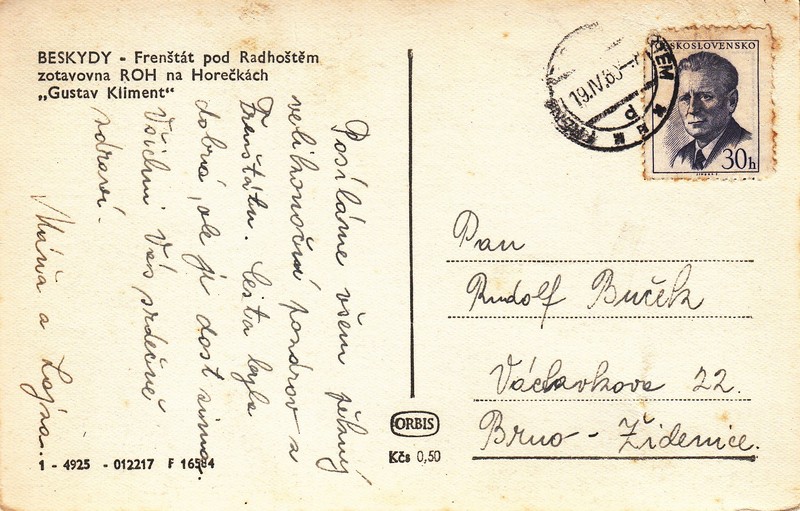 BESKYDY - Frenštát pod Radhoštěm
zotavovna ROH na Horečkách
„Gustav Kliment"
Posíláme všem pěkný
velikonoční pozdrav z
Frenštátu. Cesta byla
dobrá, ale je dost zima.
Všichni Vás srdečně
zdraví.
Máňa a Lojza.
1 - 4925 - 012217 F 16584
ORBIS
Kčs 0,50
19.IV.60
ČESKOSLOVENSKO
30h
Pan
Rudolf Buček
Václavkova 22.
Brno - Židenice.